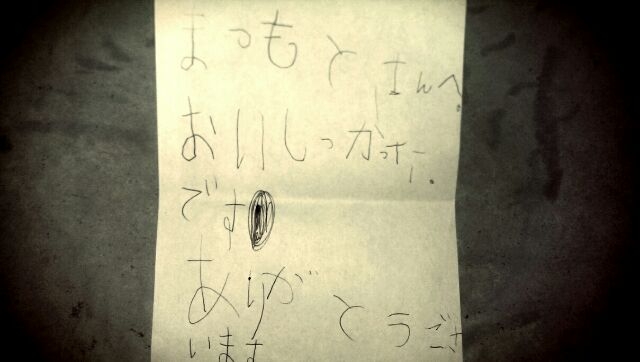 まつもと さんへ。
おいしっかった。
です
ありがとうござ
います